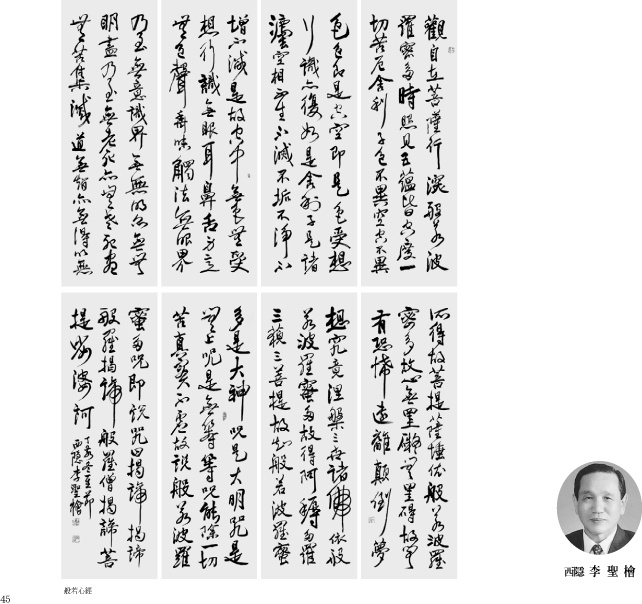 觀自在菩薩行深般若波
羅蜜多時照見五蘊皆空度一
切苦厄舍利子色不異空空不異
色色即是空空即是色受想
行識亦復如是舍利子是諸
法空相不生不滅不垢不淨不
增不減是故空中無色無受
想行識無眼耳鼻舌身意
無色聲香味觸法無眼界
乃至無意識界無無明亦無無
明盡乃至無老死亦無老死盡
無苦集滅道無智亦無得以無
所得故菩提薩埵依般若波羅
蜜多故心無罣礙無罣礙故無
有恐怖遠離顛倒夢
想究竟涅槃三世諸佛依般
若波羅蜜多故得阿耨多羅
三藐三菩提故知般若波羅蜜
多是大神呪是大明呪是
無上呪是無等等呪能除一切
苦真實不虛故說般若波羅
蜜多呪即說呪曰揭諦揭諦
般羅揭諦般羅僧揭諦菩
提娑婆訶
丁亥冬至節
西隱李聖檜
西隱 李聖檜
般若心經
45